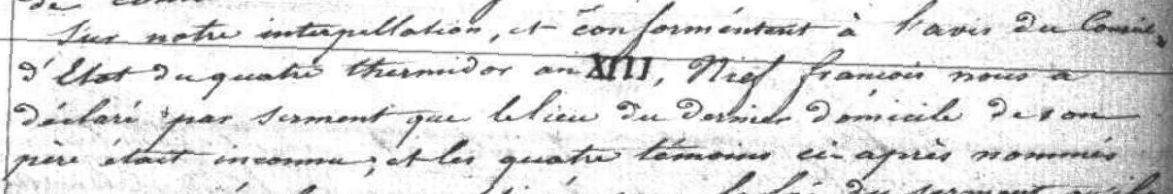 de
Sur notre interpellation, et conformément à l'avis du Conseil
d'Etat du quatre thermidor an XIII, Nief francois nous a
déclaré par serment que le lieu du dernier domicile de son
père était inconnu; et les quatre témoins ci après nommés
du serment